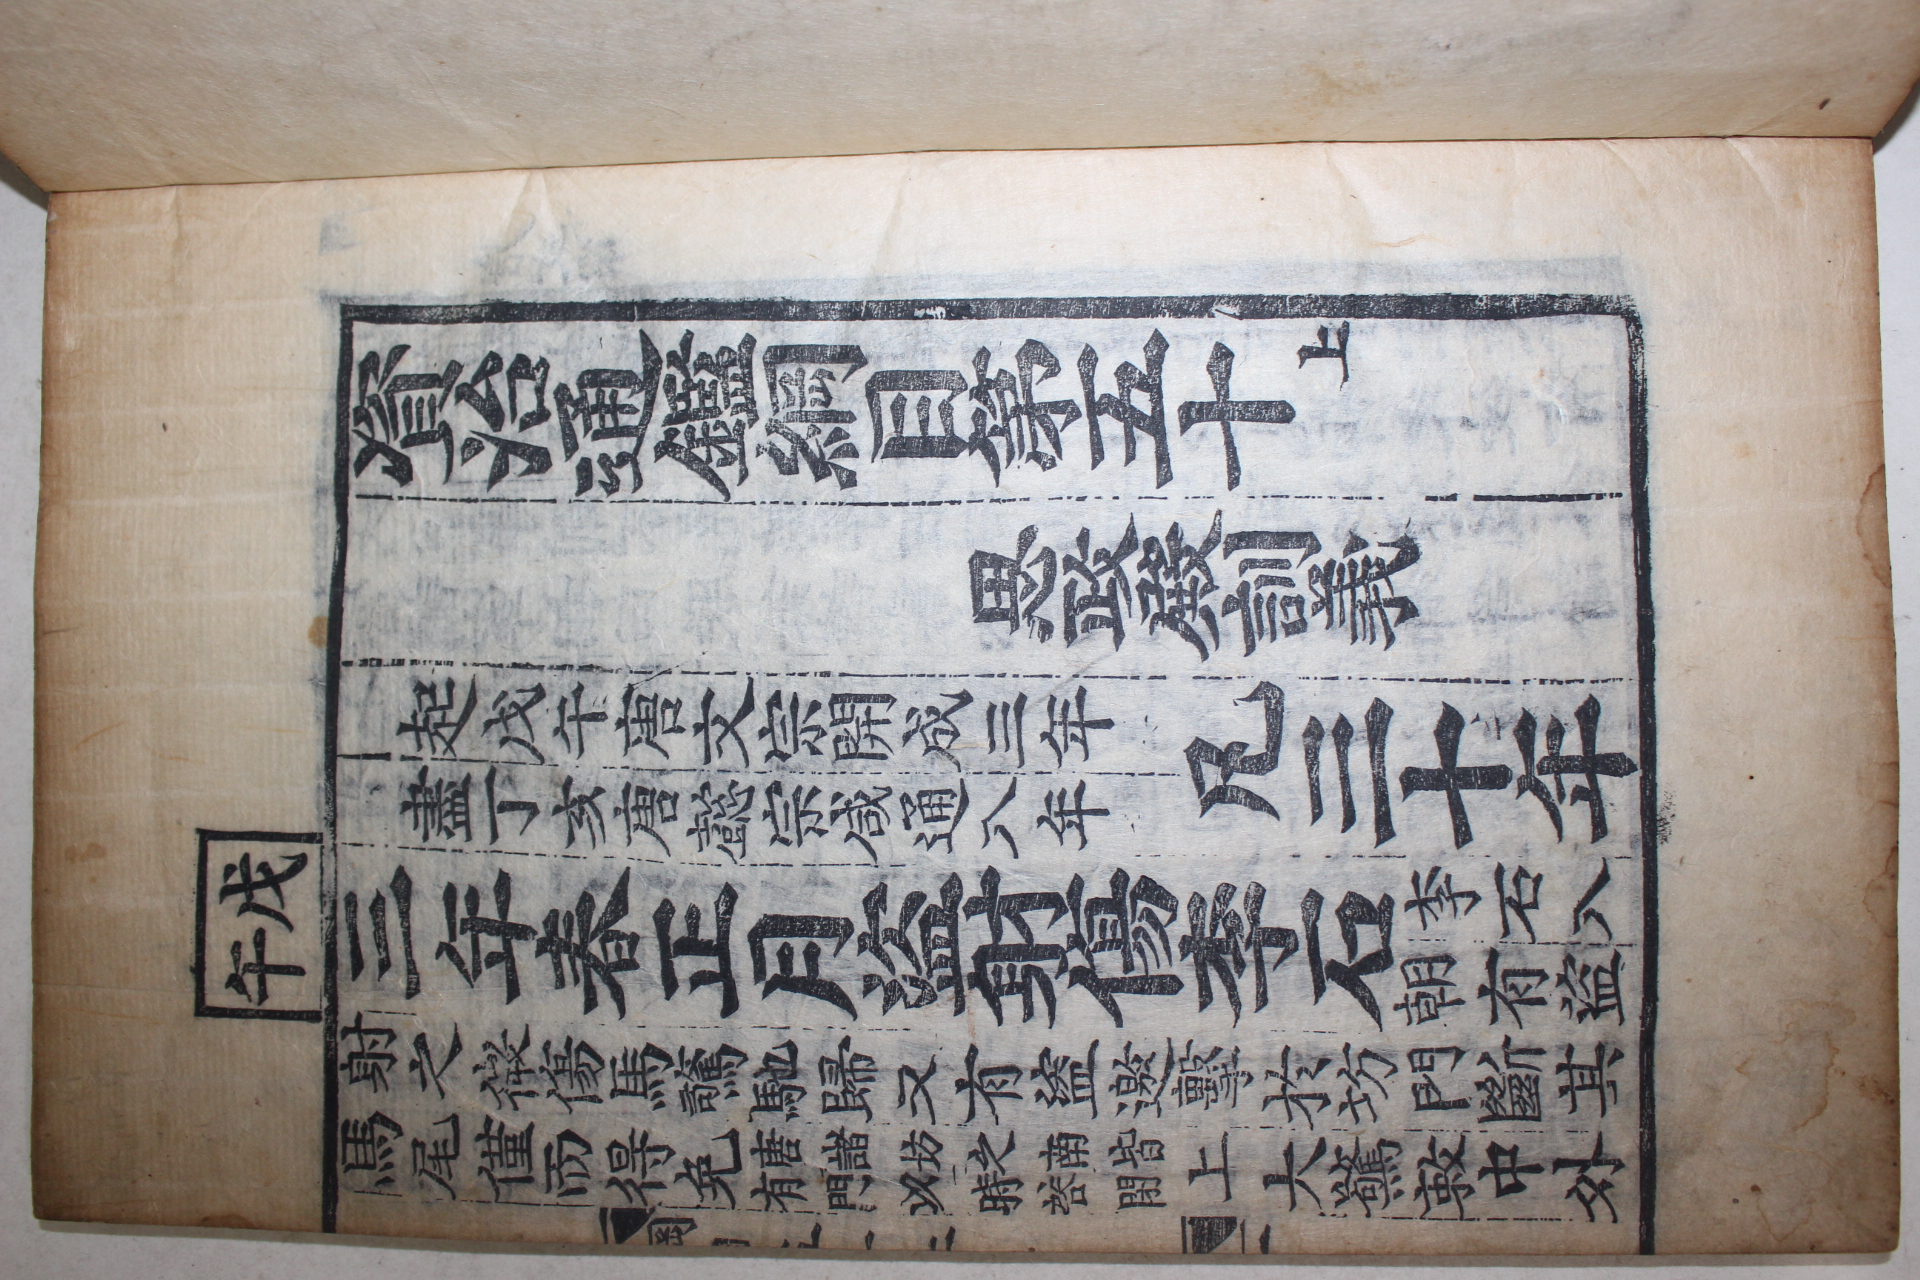 戊午
資治通鑑綱目第五十上
思政殿訓義
起戊午唐文宗開成三年
盡丁亥唐懿宗咸通八年
凡三十年
三年春正月盜射傷李石
李石入
朝有盜
射之微傷馬驚馳歸又有盜邀擊於坊門斷其
馬尾僅而得免
唐諸坊之南皆
有門以時啓閉
上大驚敕中外